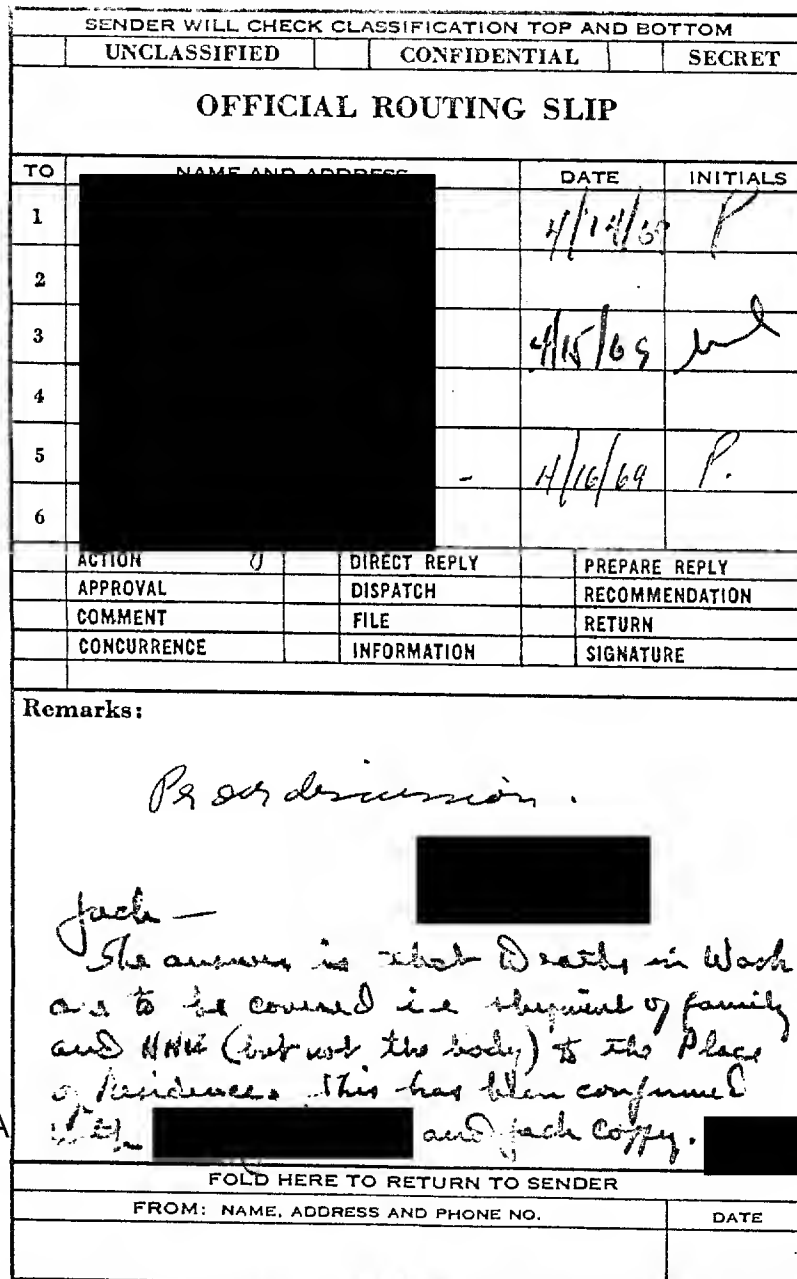 SENDER WILL CHECK CLASSIFICATION TOP AND BOTTOM
UNCLASSIFIED CONFIDENTIAL SECRET
OFFICIAL ROUTING SLIP
TO NAME AND ADDRESS DATE INITIALS
1 4/14/69 P
2
3 4/15/69
4
5 4/16/69 P.
6
ACTION DIRECT REPLY PREPARE REPLY
APPROVAL DISPATCH RECOMMENDATION
COMMENT FILE RETURN
CONCURRENCE INFORMATION SIGNATURE
Remarks:
Per our discussion.
Jack —
The answer is that Deaths in Wash
are to be covered i.e shipment of family
and HHE (but not the body) to the Place
of Residence. This has been confirmed
with and Jack Coffy.
FOLD HERE TO RETURN TO SENDER
FROM: NAME, ADDRESS AND PHONE NO. DATE